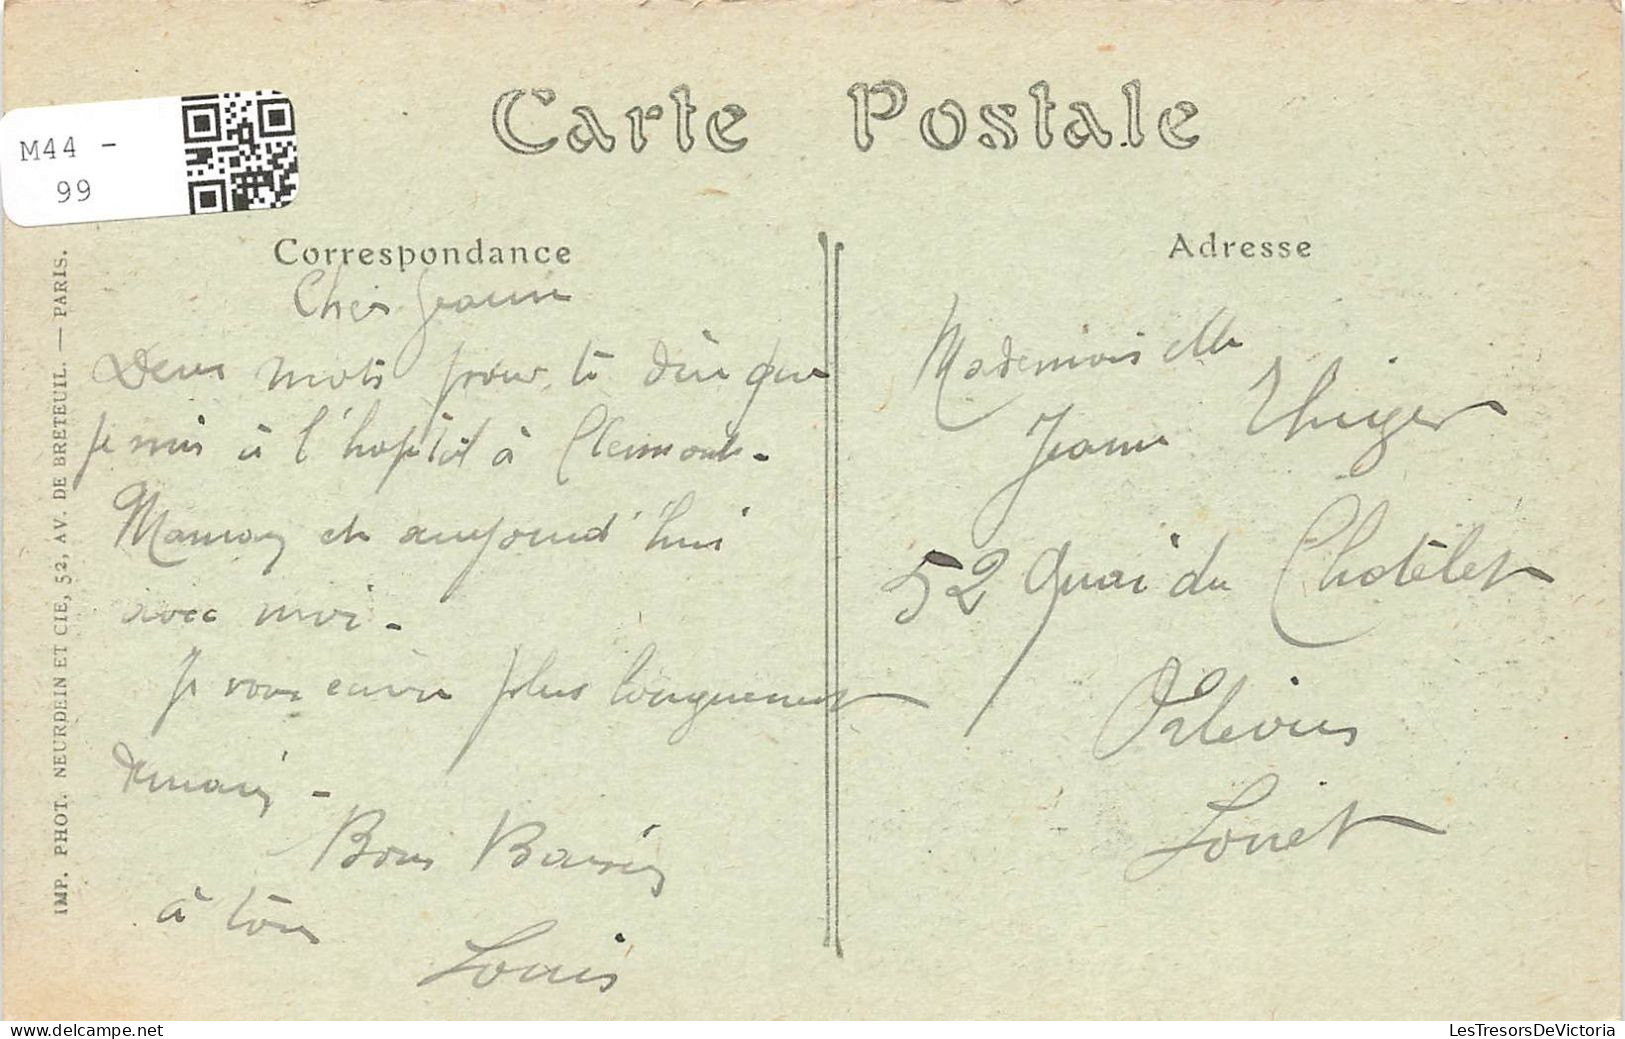 Carte Postale
M44 -
99
Correspondance
Adresse
IMP. PHOT. NEURDEIN ET CIE, 52, AV. DE BRETEUIL. — PARIS.
Cher Jeanne
Deux mots pour te dire que
je suis à l'hopital à Clermont.
Maman et aujourd'hui
avec moi.
Je vous écrire plus longuement
demain -
Bons Baisers
à tous
Louis
Mademoiselle
Jeanne Thiger
52 Quai du Chatêlet
Orleans
Loiret
LesTresorsDeVictoria
www.delcampe.net